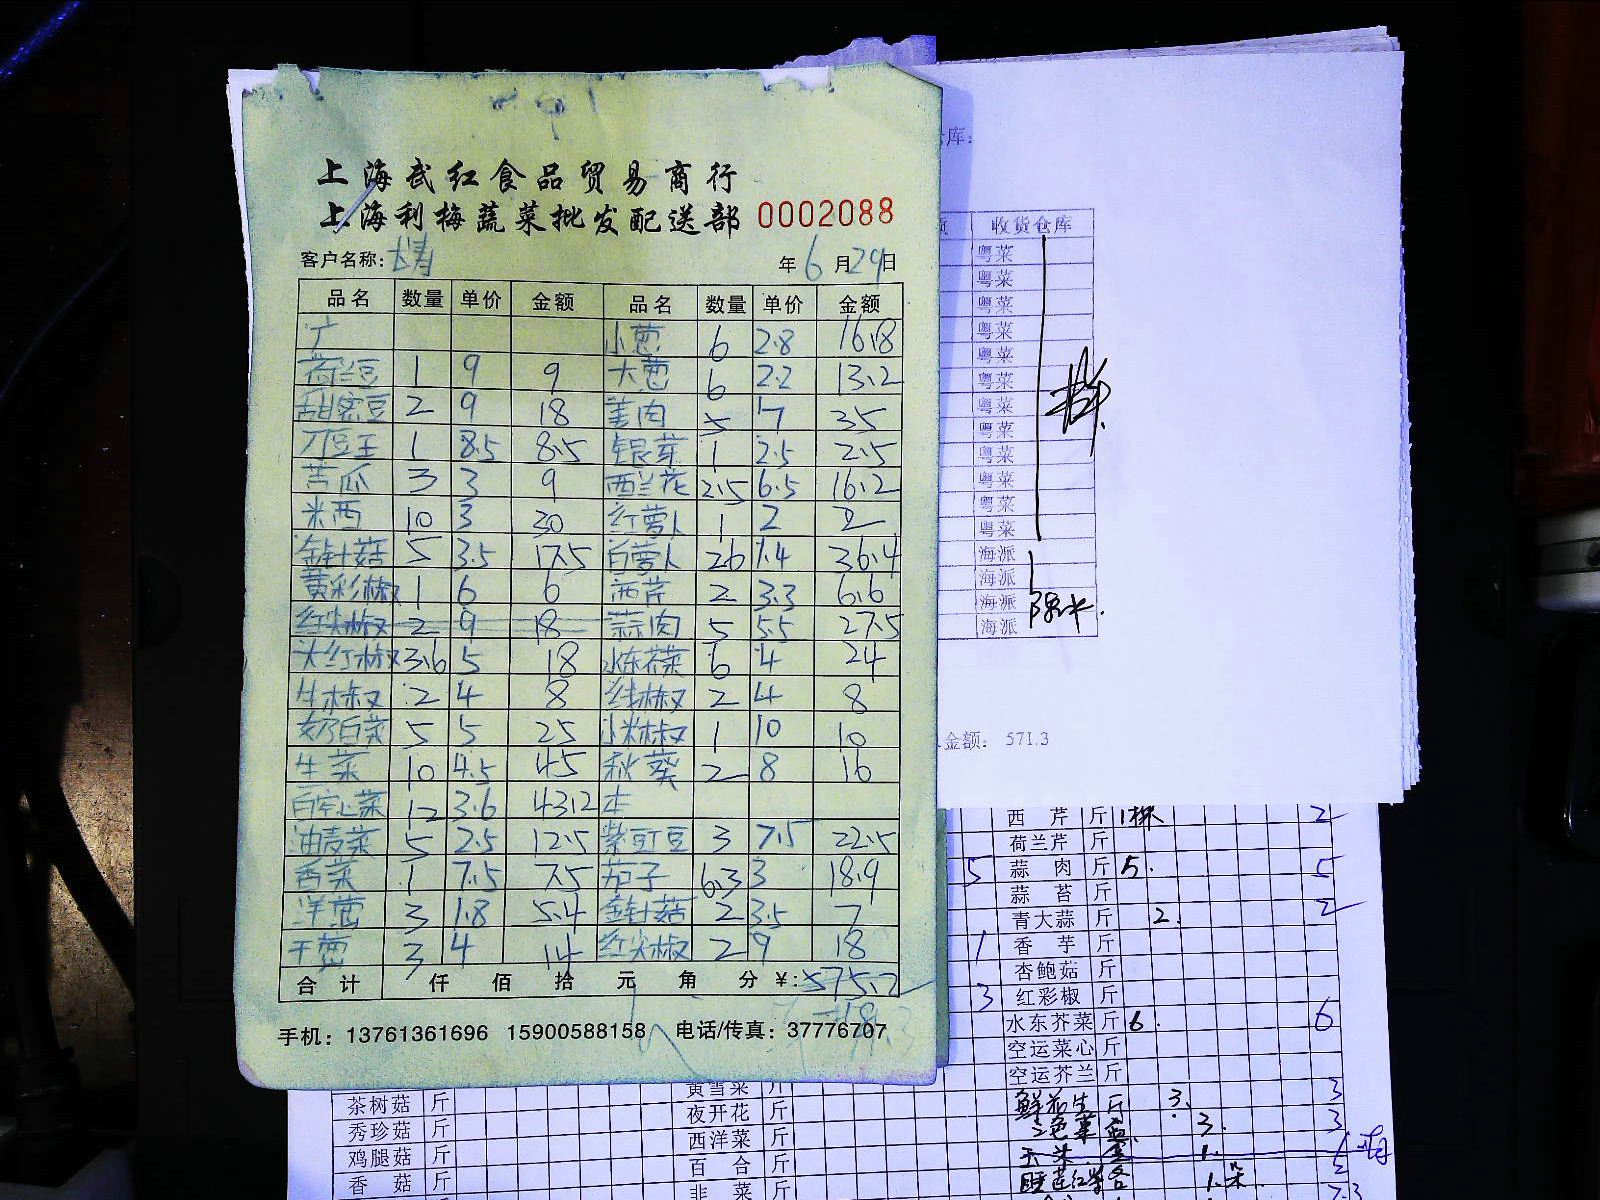 上海武红食品贸易商行
上海利梅蔬菜批发配送部 0002088
客户名称: 年 6 月 29 日
品名 数量 单价 金额 品名 数量 单价 金额
广 小葱 6 2.8 16.8
荷兰豆 1 9 9 大葱 6 2.2 13.2
甜密豆 2 9 18 姜肉 5 7 35
刀豆王 1 8.5 8.5 银芽 1 2.5 2.5
苦瓜 3 3 9 西兰花 2.5 6.5 16.2
米西 10 3 30 红萝卜 1 2 2
金针菇 5 3.5 17.5 白萝卜 26 1.4 36.4
黄彩椒 1 6 6 西芹 2 3.3 6.6
红尖椒 2 9 18 蒜肉 5 5.5 27.5
大红椒 3.6 5 18 水东芥菜 6 4 24
牛椒 2 4 8 线椒 2 4 8
奶白菜 5 5 25 小米椒 1 10 10
生菜 10 4.5 45 秋葵 2 8 16
空心菜 12 3.6 43.2 本
油麦菜 5 2.5 12.5 紫豇豆 3 7.5 22.5
香菜 1 7.5 7.5 茄子 6.3 3 18.9
洋葱 3 1.8 5.4 金针菇 2 3.5 7
干葱 3 4 14 红尖椒 2 9 18
合计 仟 佰 拾 元 角 分 ¥: 575.2
手机: 13761361696 15900588158 电话/传真: 37776707
库:
收货仓库
粤菜
粤菜
粤菜
粤菜
粤菜
粤菜
粤菜
粤菜
粤菜
粤菜
粤菜
粤菜
海派
海派
海派
海派
金额: 571.3
西芹 斤 1株 2
荷兰芹 斤
5 蒜肉 斤 5. 5
蒜苔 斤
青大蒜 斤 2. 2
1 香芋 斤
杏鲍菇 斤
3 红彩椒 斤
水东芥菜 斤 6. 6
空运菜心 斤
空运芥兰 斤
茶树菇 斤 黄雪菜 斤 鲜花生 斤 3. 3
秀珍菇 斤 夜开花 斤 3. 3
鸡腿菇 斤 西洋菜 斤 1.
香菇 斤 百合 斤 1.朵
韭菜 斤